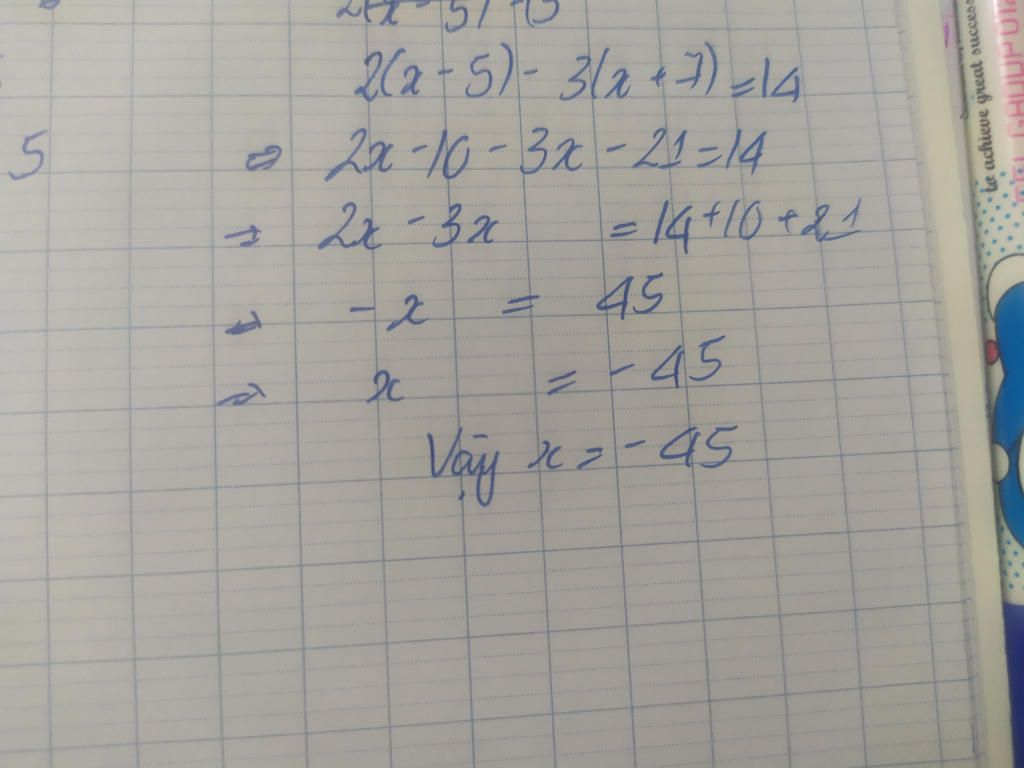 2(x - 5) - 3(x + 7) = 14
5 ⇒ 2x - 10 - 3x - 21 = 14
⇒ 2x - 3x = 14 + 10 + 21
⇒ - x = 45
⇒ x = - 45
Vậy x = - 45
to achieve great success